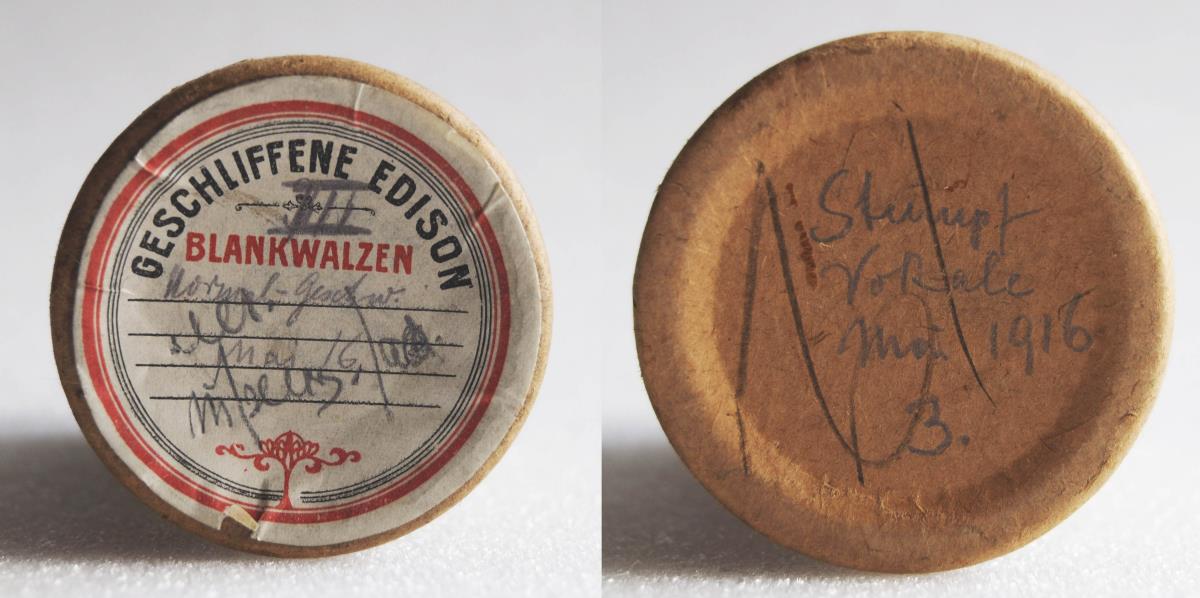 GESCHLIFFENE EDISON
III
BLANKWALZEN
Normal-Geschw.
Mai 16
Stumpf
Vokale
Mai 1916
B.